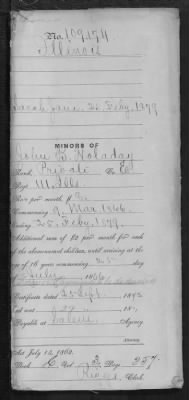 No. 109474
Illinois
Sarah Jane, 26 Feby. 1879
MINORS OF
John B. Holaday
Rank, Private Co. E
Regt. 111. Ills.
Rate per month, $ 8
Commencing 9 Mar. 1866.
Ending 25 Feby. 1879.
Additional sum of $2 per month for each
of the abovenamed children, until arriving at the
age of 16 years commencing 25
July 1866
Certificate dated 20 Sept. 1872
and sent
Payable at Salem Agency.
Attorney.
Act July 14, 1862.
Book C Vol. 3 Page 257
Clerk.